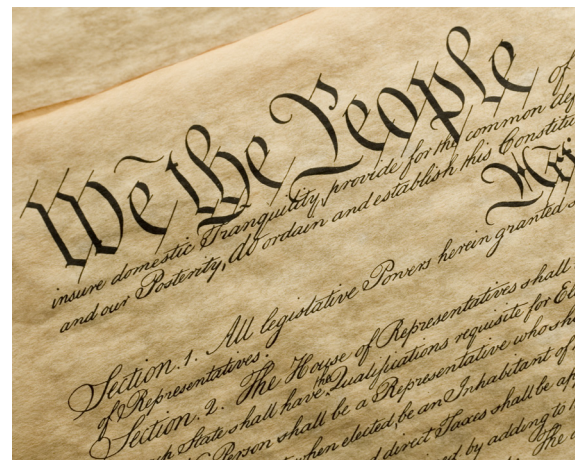 We the People of
insure domestic Tranquility, provide for the common def
and our Posterity, do ordain and establish this Constitu
Section. 1. All legislative Powers herein granted s
of Representatives.
Section. 2. The House of Representatives shall
ch State shall have the Qualifications requisite for El
Person shall be a Representative who sha
when elected, be an Inhabitant of
d direct Taxes shall be ap
by adding to
The